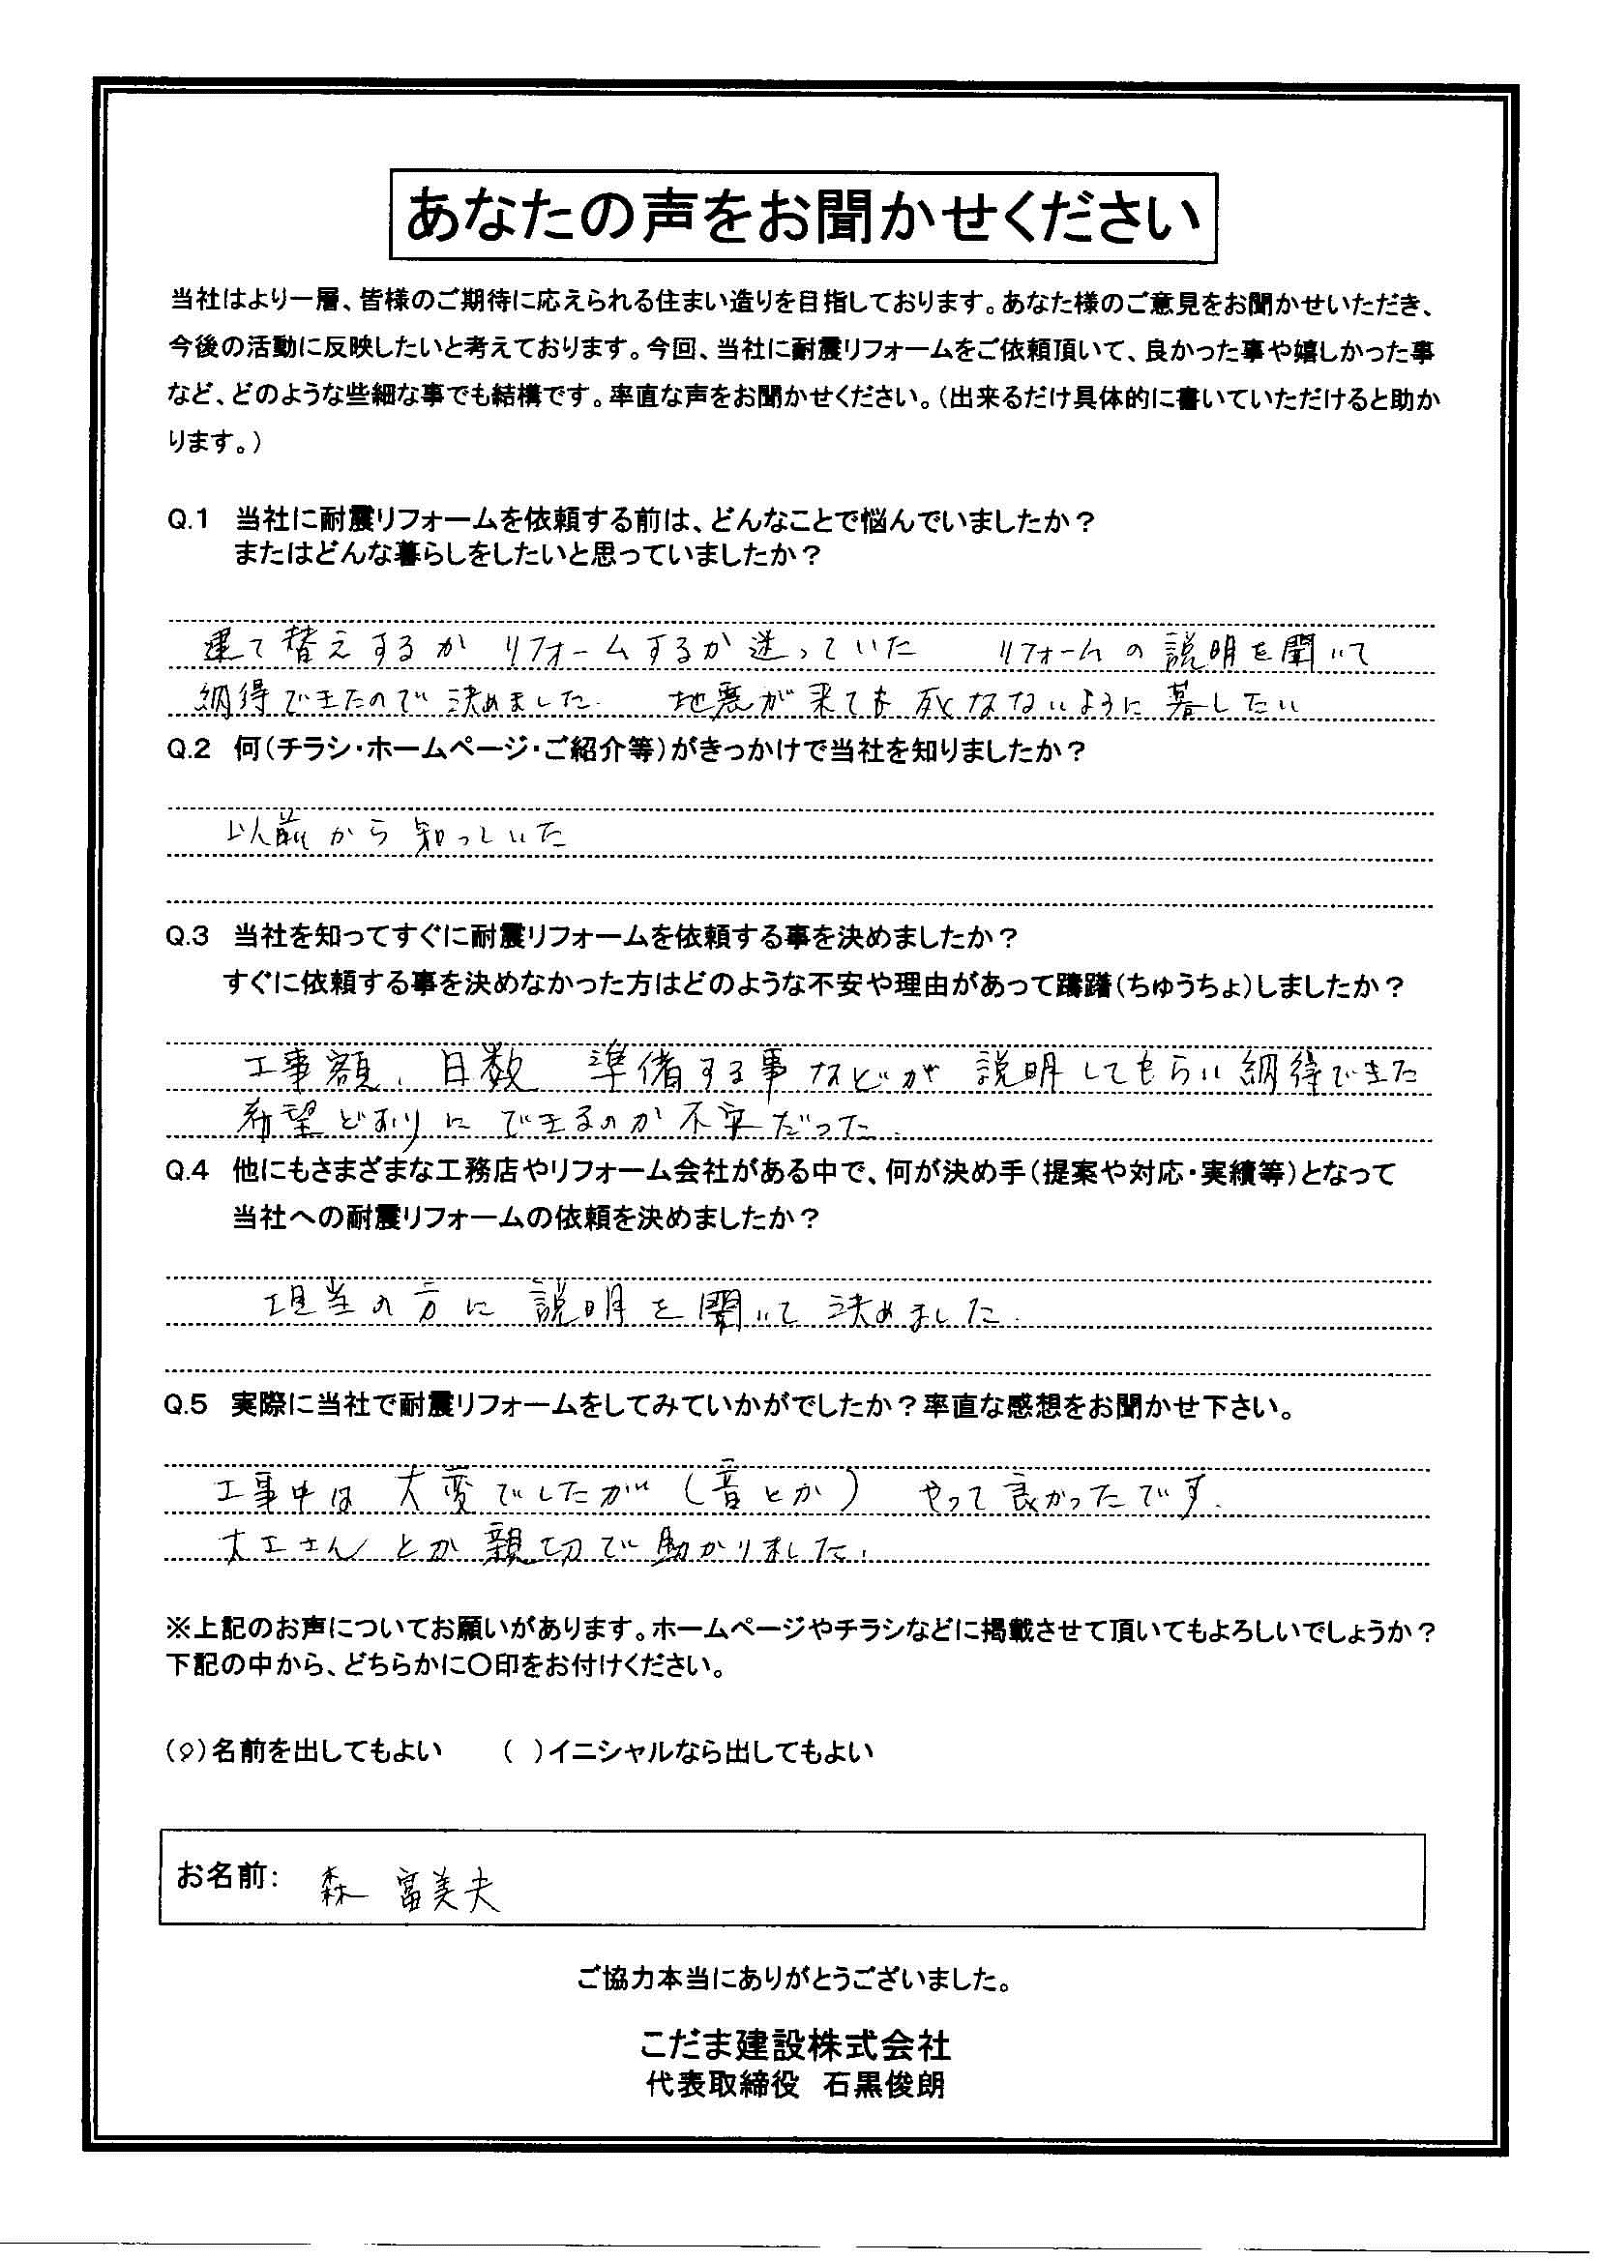 あなたの声をお聞かせください
当社はより一層、皆様のご期待に応えられる住まい造りを目指しております。あなた様のご意見をお聞かせいただき、
今後の活動に反映したいと考えております。今回、当社に耐震リフォームをご依頼頂いて、良かった事や嬉しかった事
など、どのような些細な事でも結構です。率直な声をお聞かせください。（出来るだけ具体的に書いていただけると助か
ります。）
Q.1 当社に耐震リフォームを依頼する前は、どんなことで悩んでいましたか？
またはどんな暮らしをしたいと思っていましたか？
建て替えするか リフォームするか迷っていた リフォームの説明を聞いて
納得できたので決めました. 地震が来ても死なないように暮したい
Q.2 何（チラシ・ホームページ・ご紹介等）がきっかけで当社を知りましたか？
以前から知っていた
Q.3 当社を知ってすぐに耐震リフォームを依頼する事を決めましたか？
すぐに依頼する事を決めなかった方はどのような不安や理由があって躊躇（ちゅうちょ）しましたか？
工事額、日数 準備する事などが説明してもらい納得できた
希望どおりにできるのか不安だった.
Q.4 他にもさまざまな工務店やリフォーム会社がある中で、何が決め手（提案や対応・実績等）となって
当社への耐震リフォームの依頼を決めましたか？
担当の方に説明を聞いて決めました.
Q.5 実際に当社で耐震リフォームをしてみていかがでしたか？率直な感想をお聞かせ下さい。
工事中は大変でしたが（音とか） やって良かったです.
大工さんとか親切で助かりました.
※上記のお声についてお願いがあります。ホームページやチラシなどに掲載させて頂いてもよろしいでしょうか？
下記の中から、どちらかに〇印をお付けください。
（○）名前を出してもよい （ ）イニシャルなら出してもよい
お名前： 森 富美夫
ご協力本当にありがとうございました。
こだま建設株式会社
代表取締役 石黒俊朗